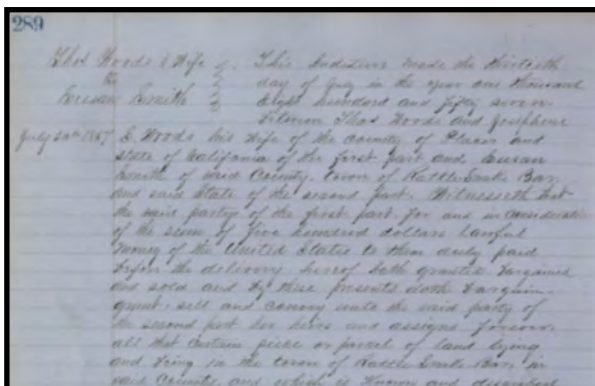 289
Thos Woods & Wife } This Indenture made the thirtieth
to } day of July in the year one thousand
Susan Smith } eight hundred and fifty seven
Between Thos Woods and Josephene
July 30th 1857 E. Woods his wife of the county of Placer and
state of California of the first part and Susan
Smith of said County, town of Rattle Snake Bar
and said State of the second part. Witnesseth that
the said party of the first part for and in consideration
of the sum of five hundred dollars lawful
money of the United States to them duly paid
before the delivery hereof hath granted bargained
and sold and by these presents doth bargain
grant, sell and convey unto the said party of
the second part her heirs and assigns forever,
all that certain piece or parcel of land lying
and being in the town of Rattle Snake Bar in
said County, and which is known and